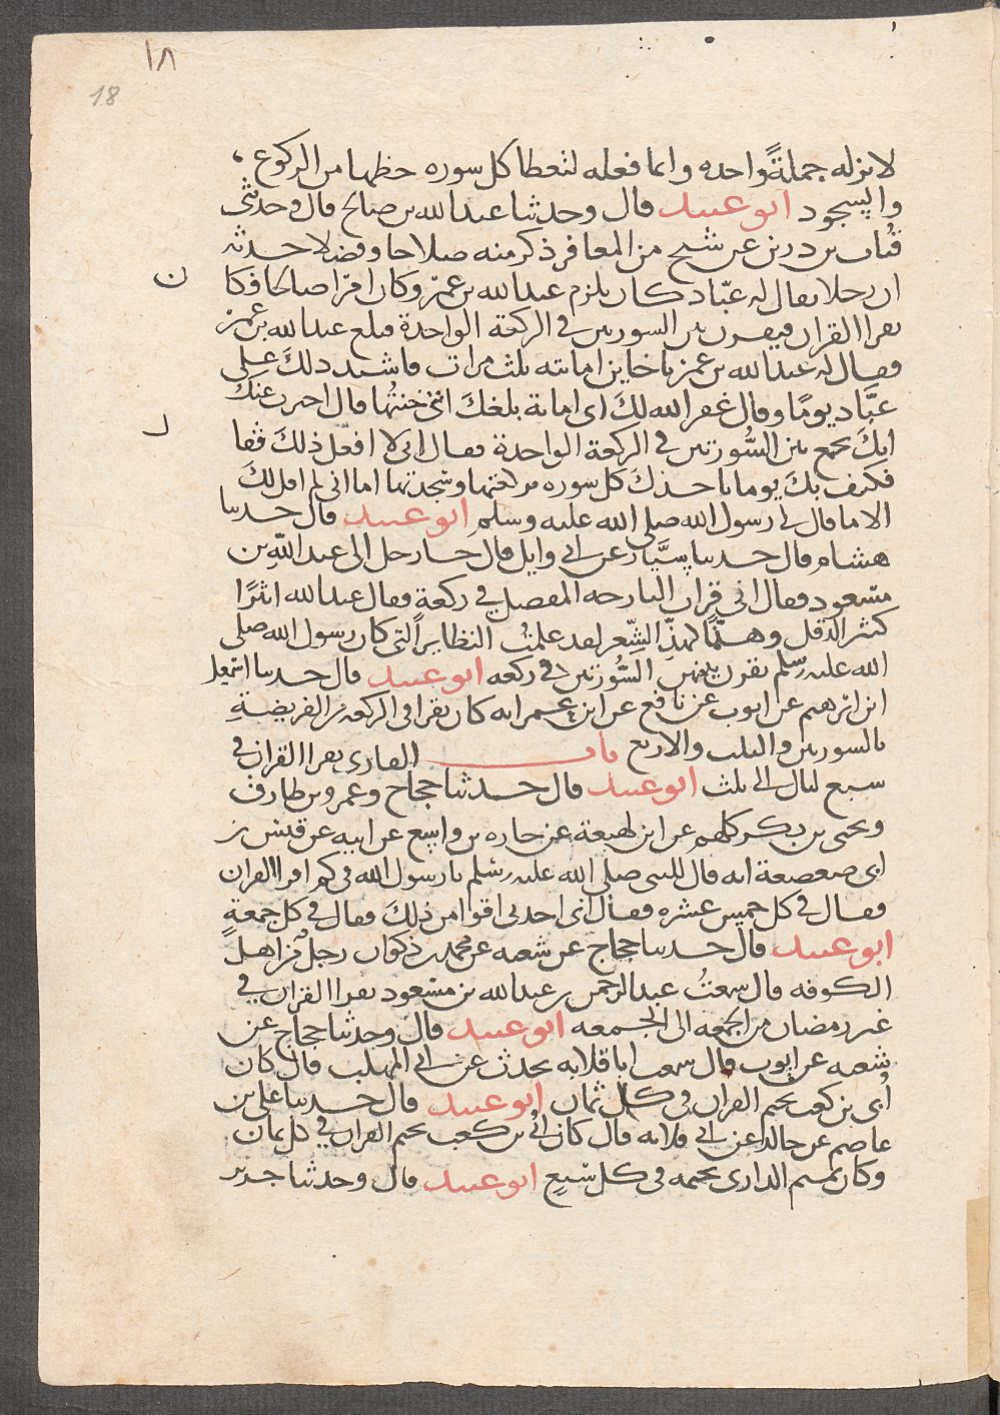 ١٨
18
لانزله جملةً واحده وانما فعله لتعطا كل سوره حظها من الركوع ،
والسجود ابو عبيد قال وحدثنا عبدالله بن صالح قال وحدثني
قباث بن رزين عن شيخ من المعافر ذكر منه صلاحا وفضلا حدثه
ان رجلا يقال له عبّاد كان يلزم عبدالله بن عمرو وكان امرا صالحا فكا
ن
يقرا القران فيقرن بين السورتين في الركعة الواحدة فبلغ عبدالله بن عمرو
فقال له عبدالله بن عمرو يا خاين امانته ثلث مرات فاشتد ذلك على
عبَّاد يومًا وقال غفر الله لكَ اى امانة بلغكَ انى خنتُها قال اخبرت عنك
انكَ تجمع بين السُّورتين في الركعة الواحدة فقال انى لا افعل ذلكَ فقا
ل
فكيف بكَ يوما تاخذكَ كل سوره بركعتها وسجدتها اما انى لم اقل لكَ
الا ما قال لى رسول الله صلى الله عليه وسلم ابو عبيد قال حدثنا
هشام قال حدثنا سيَّار عن ابى وايل قال جا رجل الى عبد اللّهِ بن
مسعود فقال انى قرات البارحه المفصل في ركعةٍ فقال عبدالله انثرًا
كنثر الدقل وهذًّا كهذِّ الشِّعر لقد علمتُ النظايرَ التى كان رسول الله صلى
الله عليه وسلم يقرن بينهن السُّورتين في ركعه ابو عبيد قال حدثنا اسمعيل
ابن ابرهيم عن ايوب عن نافع عن ابن عمر انه كان يقرا في الركعه من الفريضةِ
بالسورتين والثلث والاربع باب القارى يقرا القران في
سبع ليال الى ثلث ابو عبيد قال حدثنا حجاج وعمرو بن طارق
ويحيى بن بكير كلهم عن ابن لهيعة عن حبان بن واسع عن ابيه عن قيس بن
ابى صعصعة انه قال للنبى صلى الله عليه وسلم يا رسول الله في كم اقرا القران
فقال في كل خمس عشره فقال انى اجدنى اقوا من ذلكَ فقال في كل جمعةٍ
ابو عبيد قال حدثنا حجاج عن شعبه عن محمد بن ذكوان رجلٌ من اهل
الكوفه قال سمعتُ عبدالرحمن بن عبدالله بن مسعود يقرا القران في
غير رمضان من الجمعه الى الجمعه ابو عبيد قال وحدثنا حجاج عن
شعبه عن ايوب قال سمعت ابا قلابه يحدث عن ابى المهلب قال كان
أُبى بن كعب يختم القران في كل ثمان ابو عبيد قال حدثنا على بن
عاصم عن خالد عن ابى قلابه قال كان اُبى بن كعب يختم القران في كل ثمان
وكان تميم الدارى يختمه في كل سبع ابو عبيد قال وحدثنا جرير